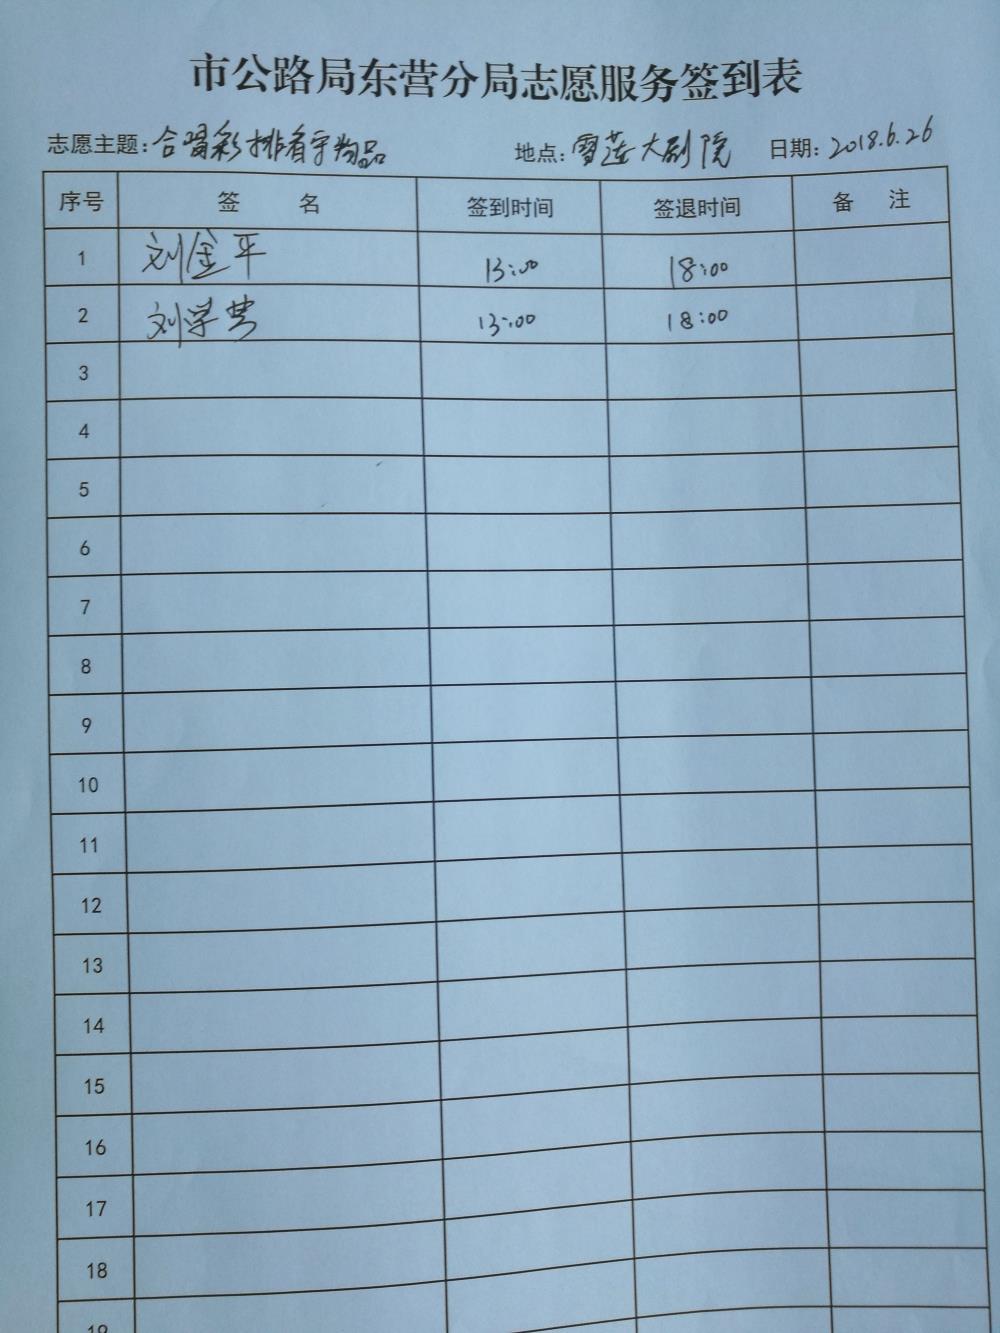 市公路局东营分局志愿服务签到表
志愿主题：合唱彩排看守物品 地点：雪莲大剧院 日期：2018.6.26
序号 签 名 签到时间 签退时间 备 注
1 刘金平 13:00 18:00
2 刘学 13:00 18:00
3
4
5
6
7
8
9
10
11
12
13
14
15
16
17
18
19